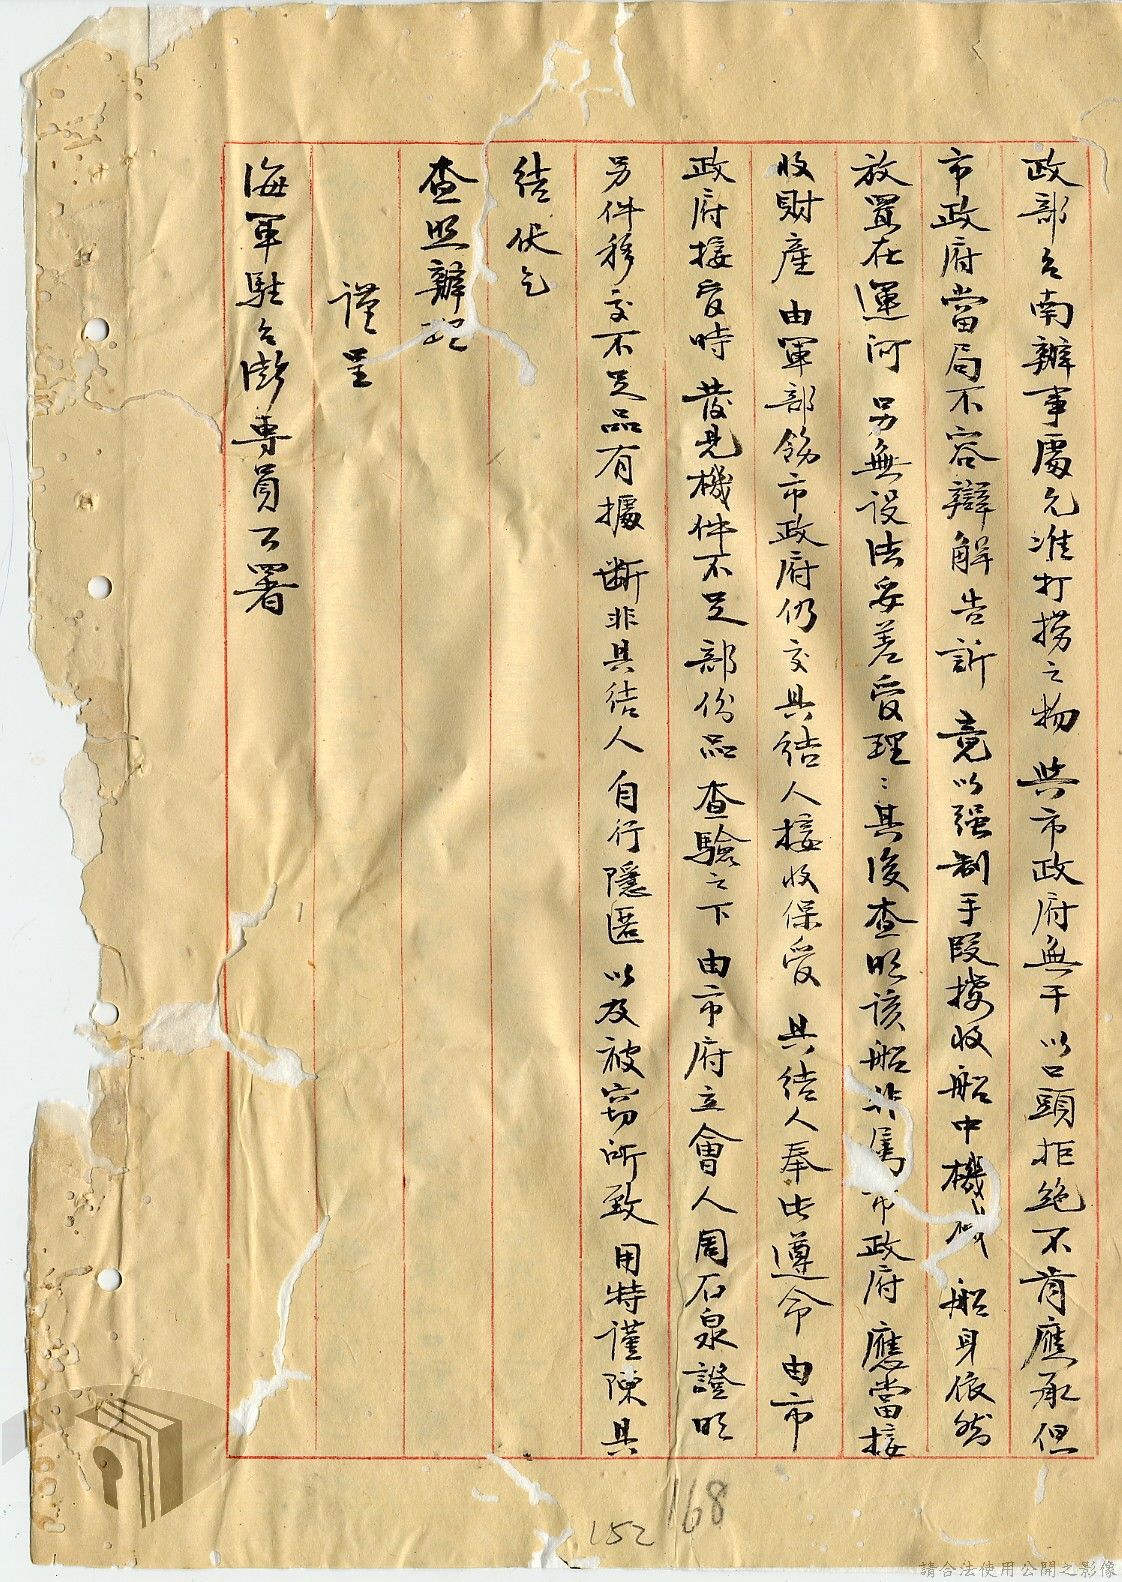 政部台南辦事處允准打撈之物與市政府無干以口頭拒絕不肯應承但
市政府當局不容辯解告訴竟以强制手段擄收船中機械船身依然
放置在運河另無設法妥差受理:其後查明該船非屬市政府應當接
收財產由軍部飭市政府仍交具結人接收保受具結人奉此遵命由市
政府接受時發見機件不足部份品查驗之下由市府立會人周石泉證明
另件移交不足品有據斷非具结人自行隱匿以及被竊所致用特謹陳具
结伏乞
查照辦理
謹呈
海軍駐台澎專員公署
168
152
請合法使用公開之影像